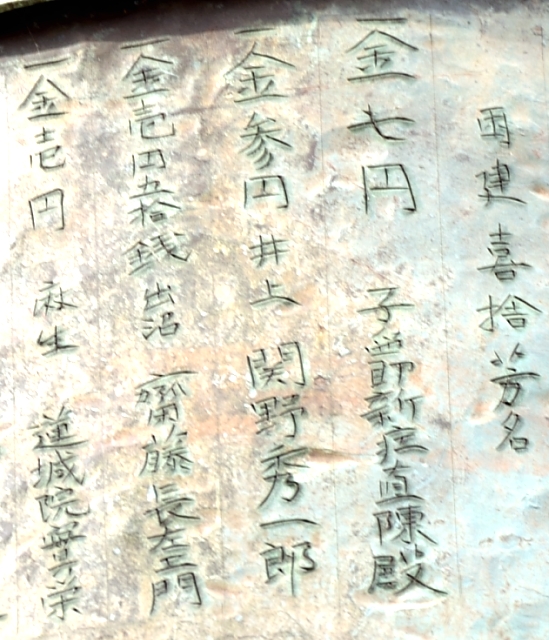 再建喜捨芳名
一金七円 子爵新庄直陳殿
一金参円 井上 関野秀一郎
一金壱円五拾銭 出沼 齋藤長左エ門
一金壱円 麻生 蓮城院 栄